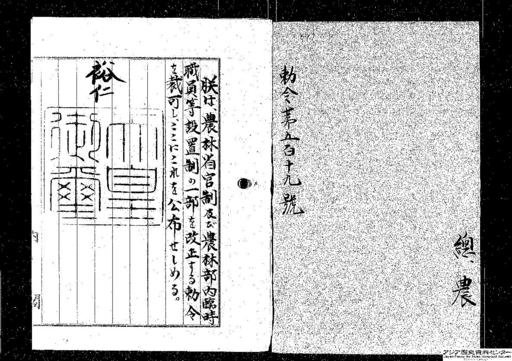 勅令第五百十九號
總農
朕は、農林省官制及び農林部内臨時
職員等設置制の一部を改正する勅令
を裁可し、ここにこれを公布せしめる。
裕仁
天皇
御璽
内閣
アジア歴史資料センター